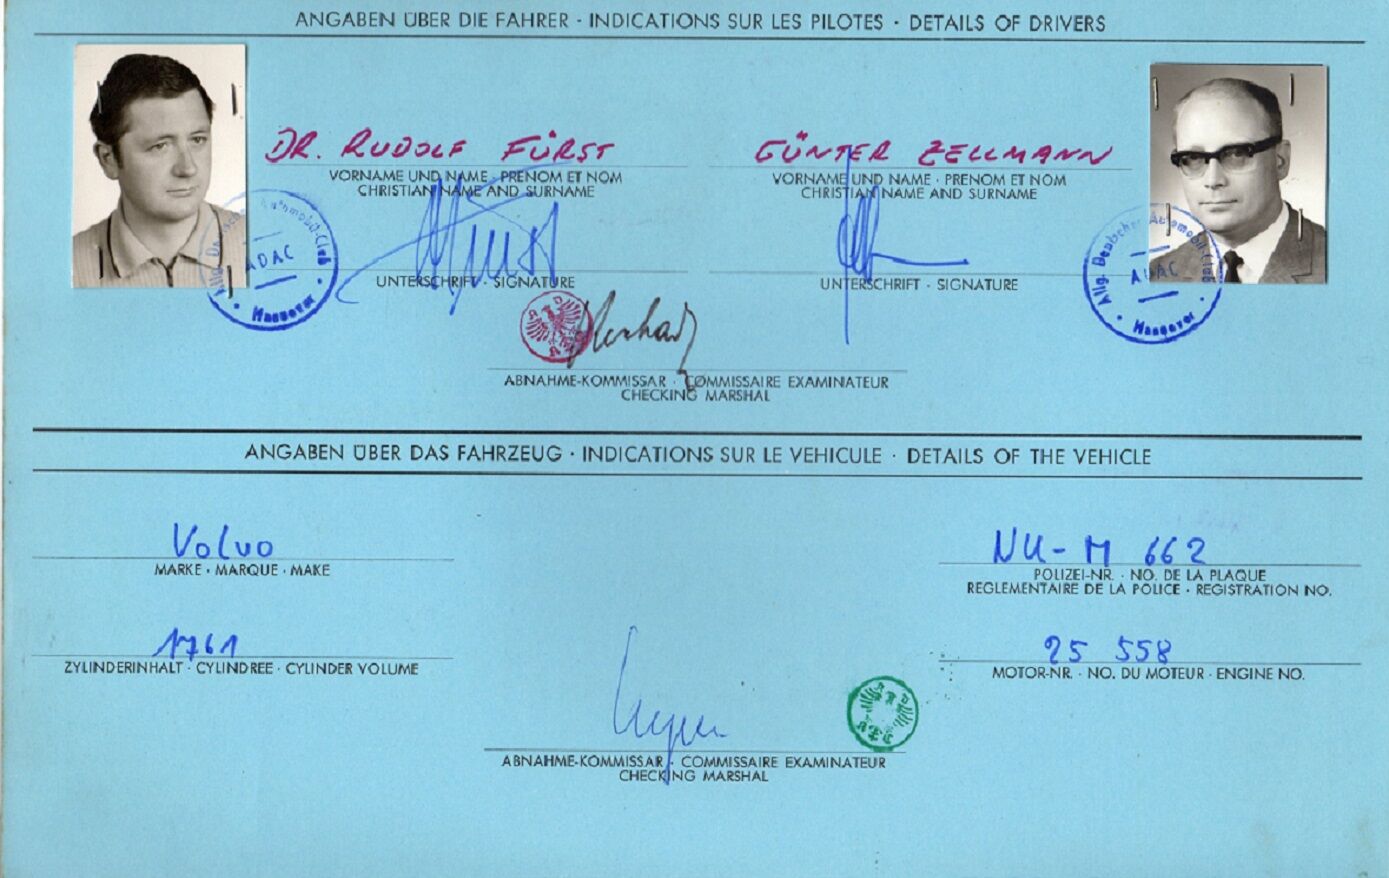 ANGABEN ÜBER DIE FAHRER · INDICATIONS SUR LES PILOTES · DETAILS OF DRIVERS
DR. RUDOLF FÜRST
VORNAME UND NAME · PRENOM ET NOM
CHRISTIAN NAME AND SURNAME
Fürst
UNTERSCHRIFT · SIGNATURE
Allg. Deutscher Automobil-Club
ADAC
Hannover
GÜNTER ZELLMANN
VORNAME UND NAME · PRENOM ET NOM
CHRISTIAN NAME AND SURNAME
UNTERSCHRIFT · SIGNATURE
Allg. Deutscher Automobil-Club
ADAC
Hannover
ABNAHME-KOMMISSAR · COMMISSAIRE EXAMINATEUR
CHECKING MARSHAL
ANGABEN ÜBER DAS FAHRZEUG · INDICATIONS SUR LE VEHICULE · DETAILS OF THE VEHICLE
Volvo
MARKE · MARQUE · MAKE
NU-M 662
POLIZEI-NR. · NO. DE LA PLAQUE
REGLEMENTAIRE DE LA POLICE · REGISTRATION NO.
1761
ZYLINDERINHALT · CYLINDREE · CYLINDER VOLUME
25 558
MOTOR-NR. · NO. DU MOTEUR · ENGINE NO.
ABNAHME-KOMMISSAR · COMMISSAIRE EXAMINATEUR
CHECKING MARSHAL